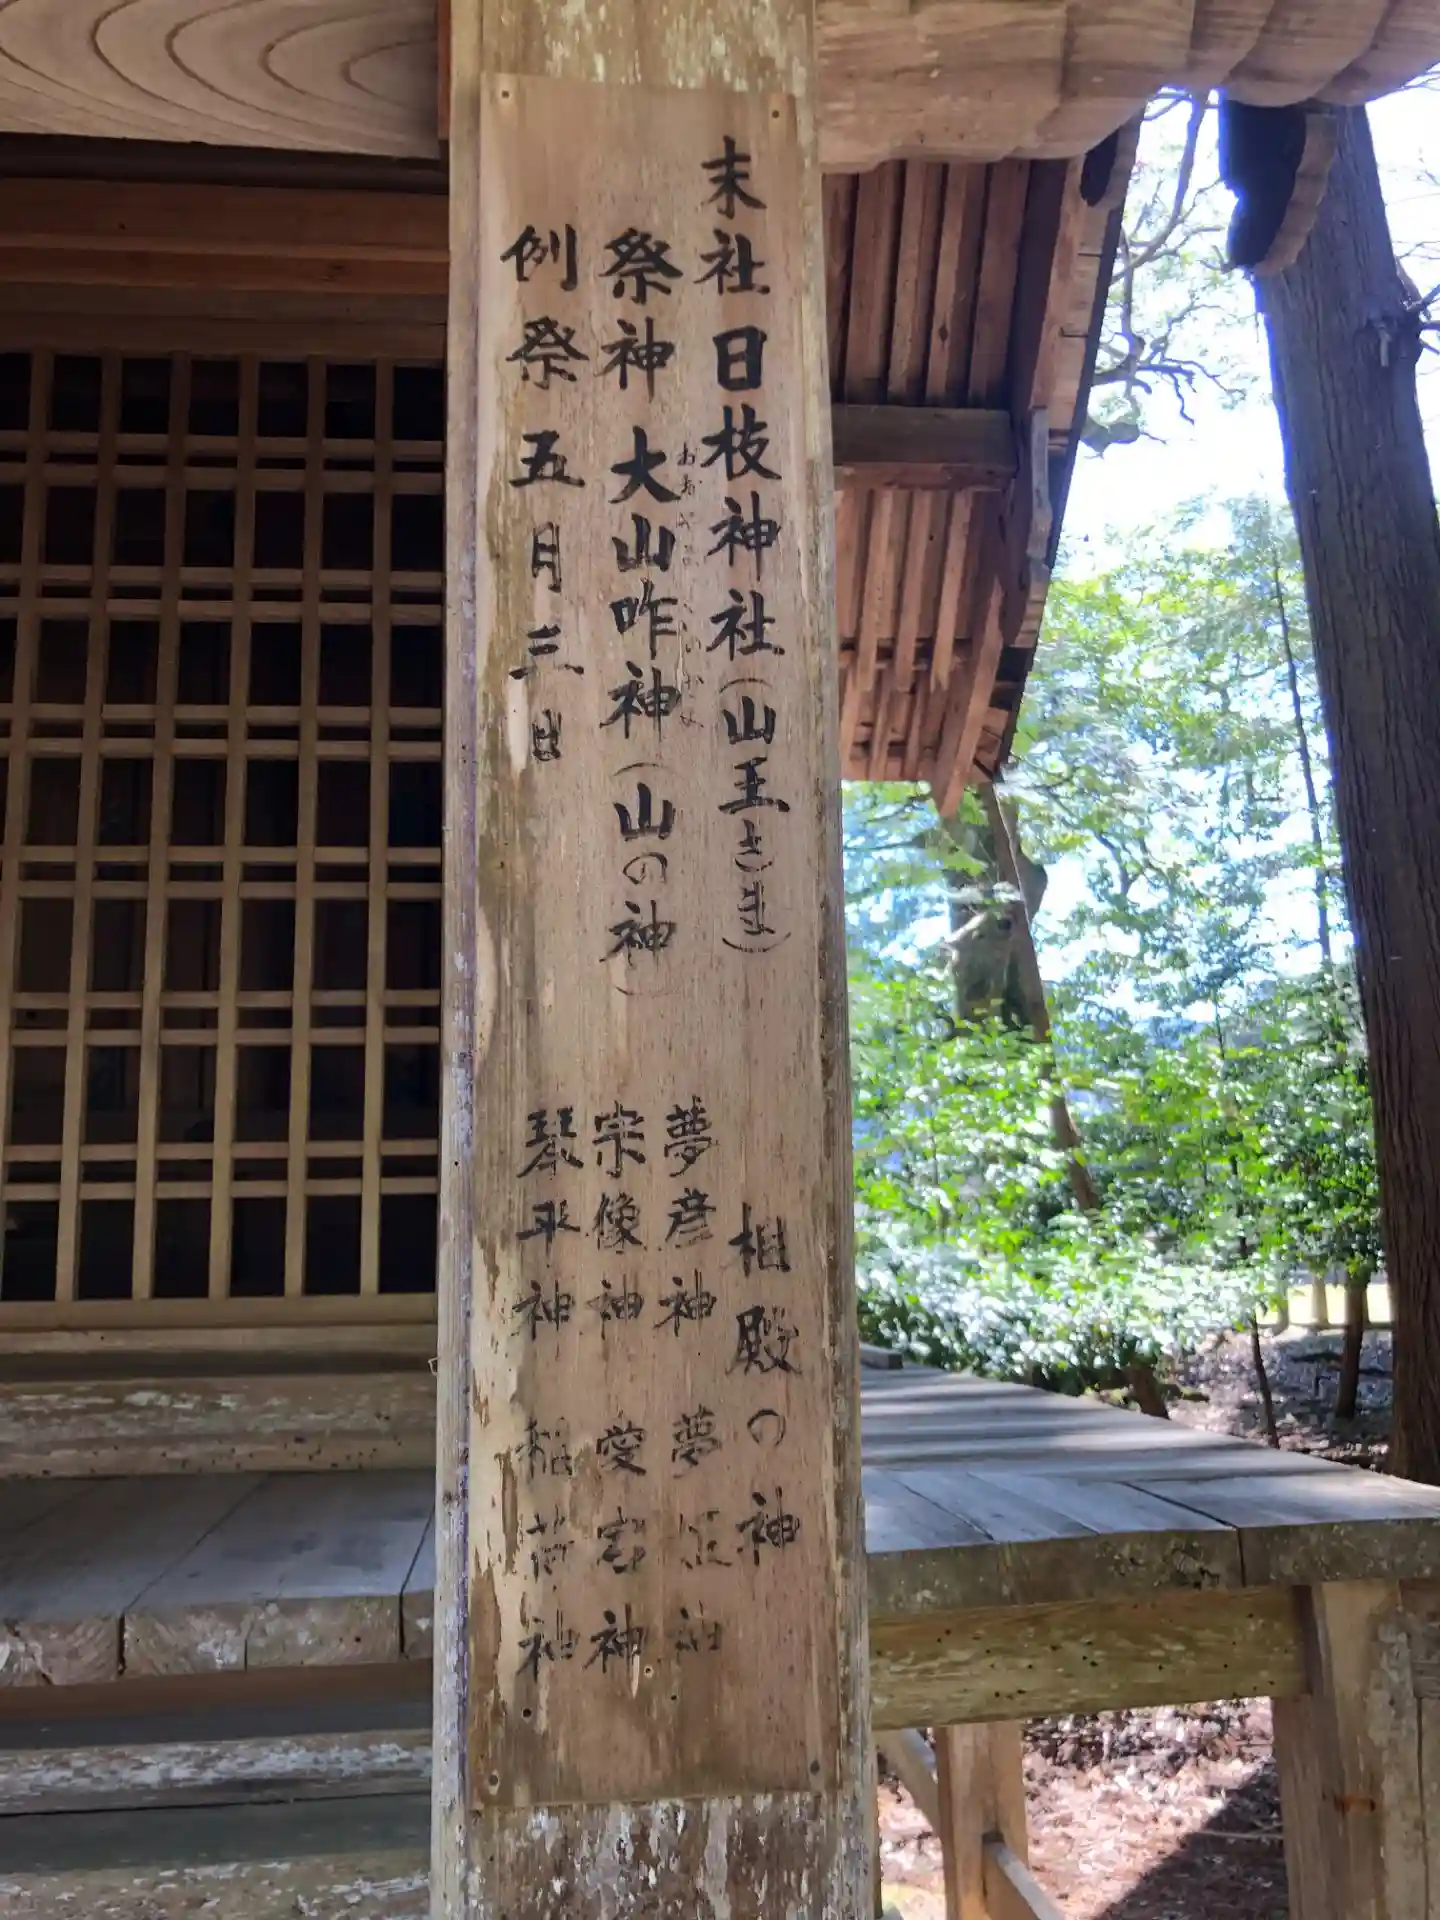 末社 日枝神社(山王さま)
祭神 大山咋神(山の神)
おおやまくいのかみ
例祭 五月三日
相殿の神
夢彦神 夢姫神
宗像神 愛宕神
琴平神 稲荷神